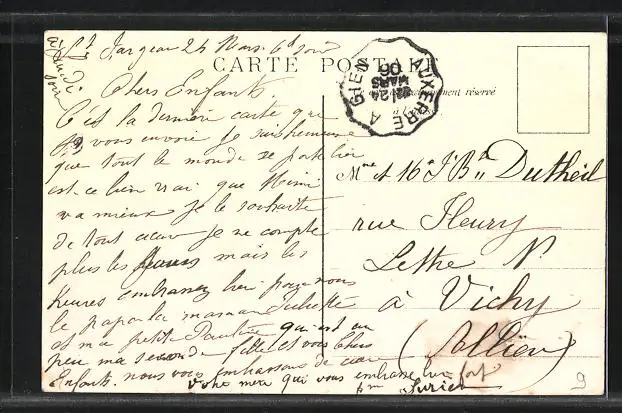 St Fargeau 24 Mars 6h soir
CARTE POSTALE
AUXERRE A GIEN
24
MARS
06
réservé
Chers Enfants.
C'est la dernière carte que
je vous envoie je suis heureuse
que tout le monde se porte bien
est-ce bien vrai que Mimi
va mieux je le souhaite
de tout cœur je ne compte
plus les jours mais les
heures embrassez bien pour nous
le papa la maman Juliette
et ma petite Pauline qui est un
peu ma seconde fille et vous Chers
Enfants. nous vous embrassons de cœur
votre mère qui vous embrasse bien fort
Mme et J. Bte Dutheil
rue Fleury
Lettre N.
à Vichy
(Allier)
9